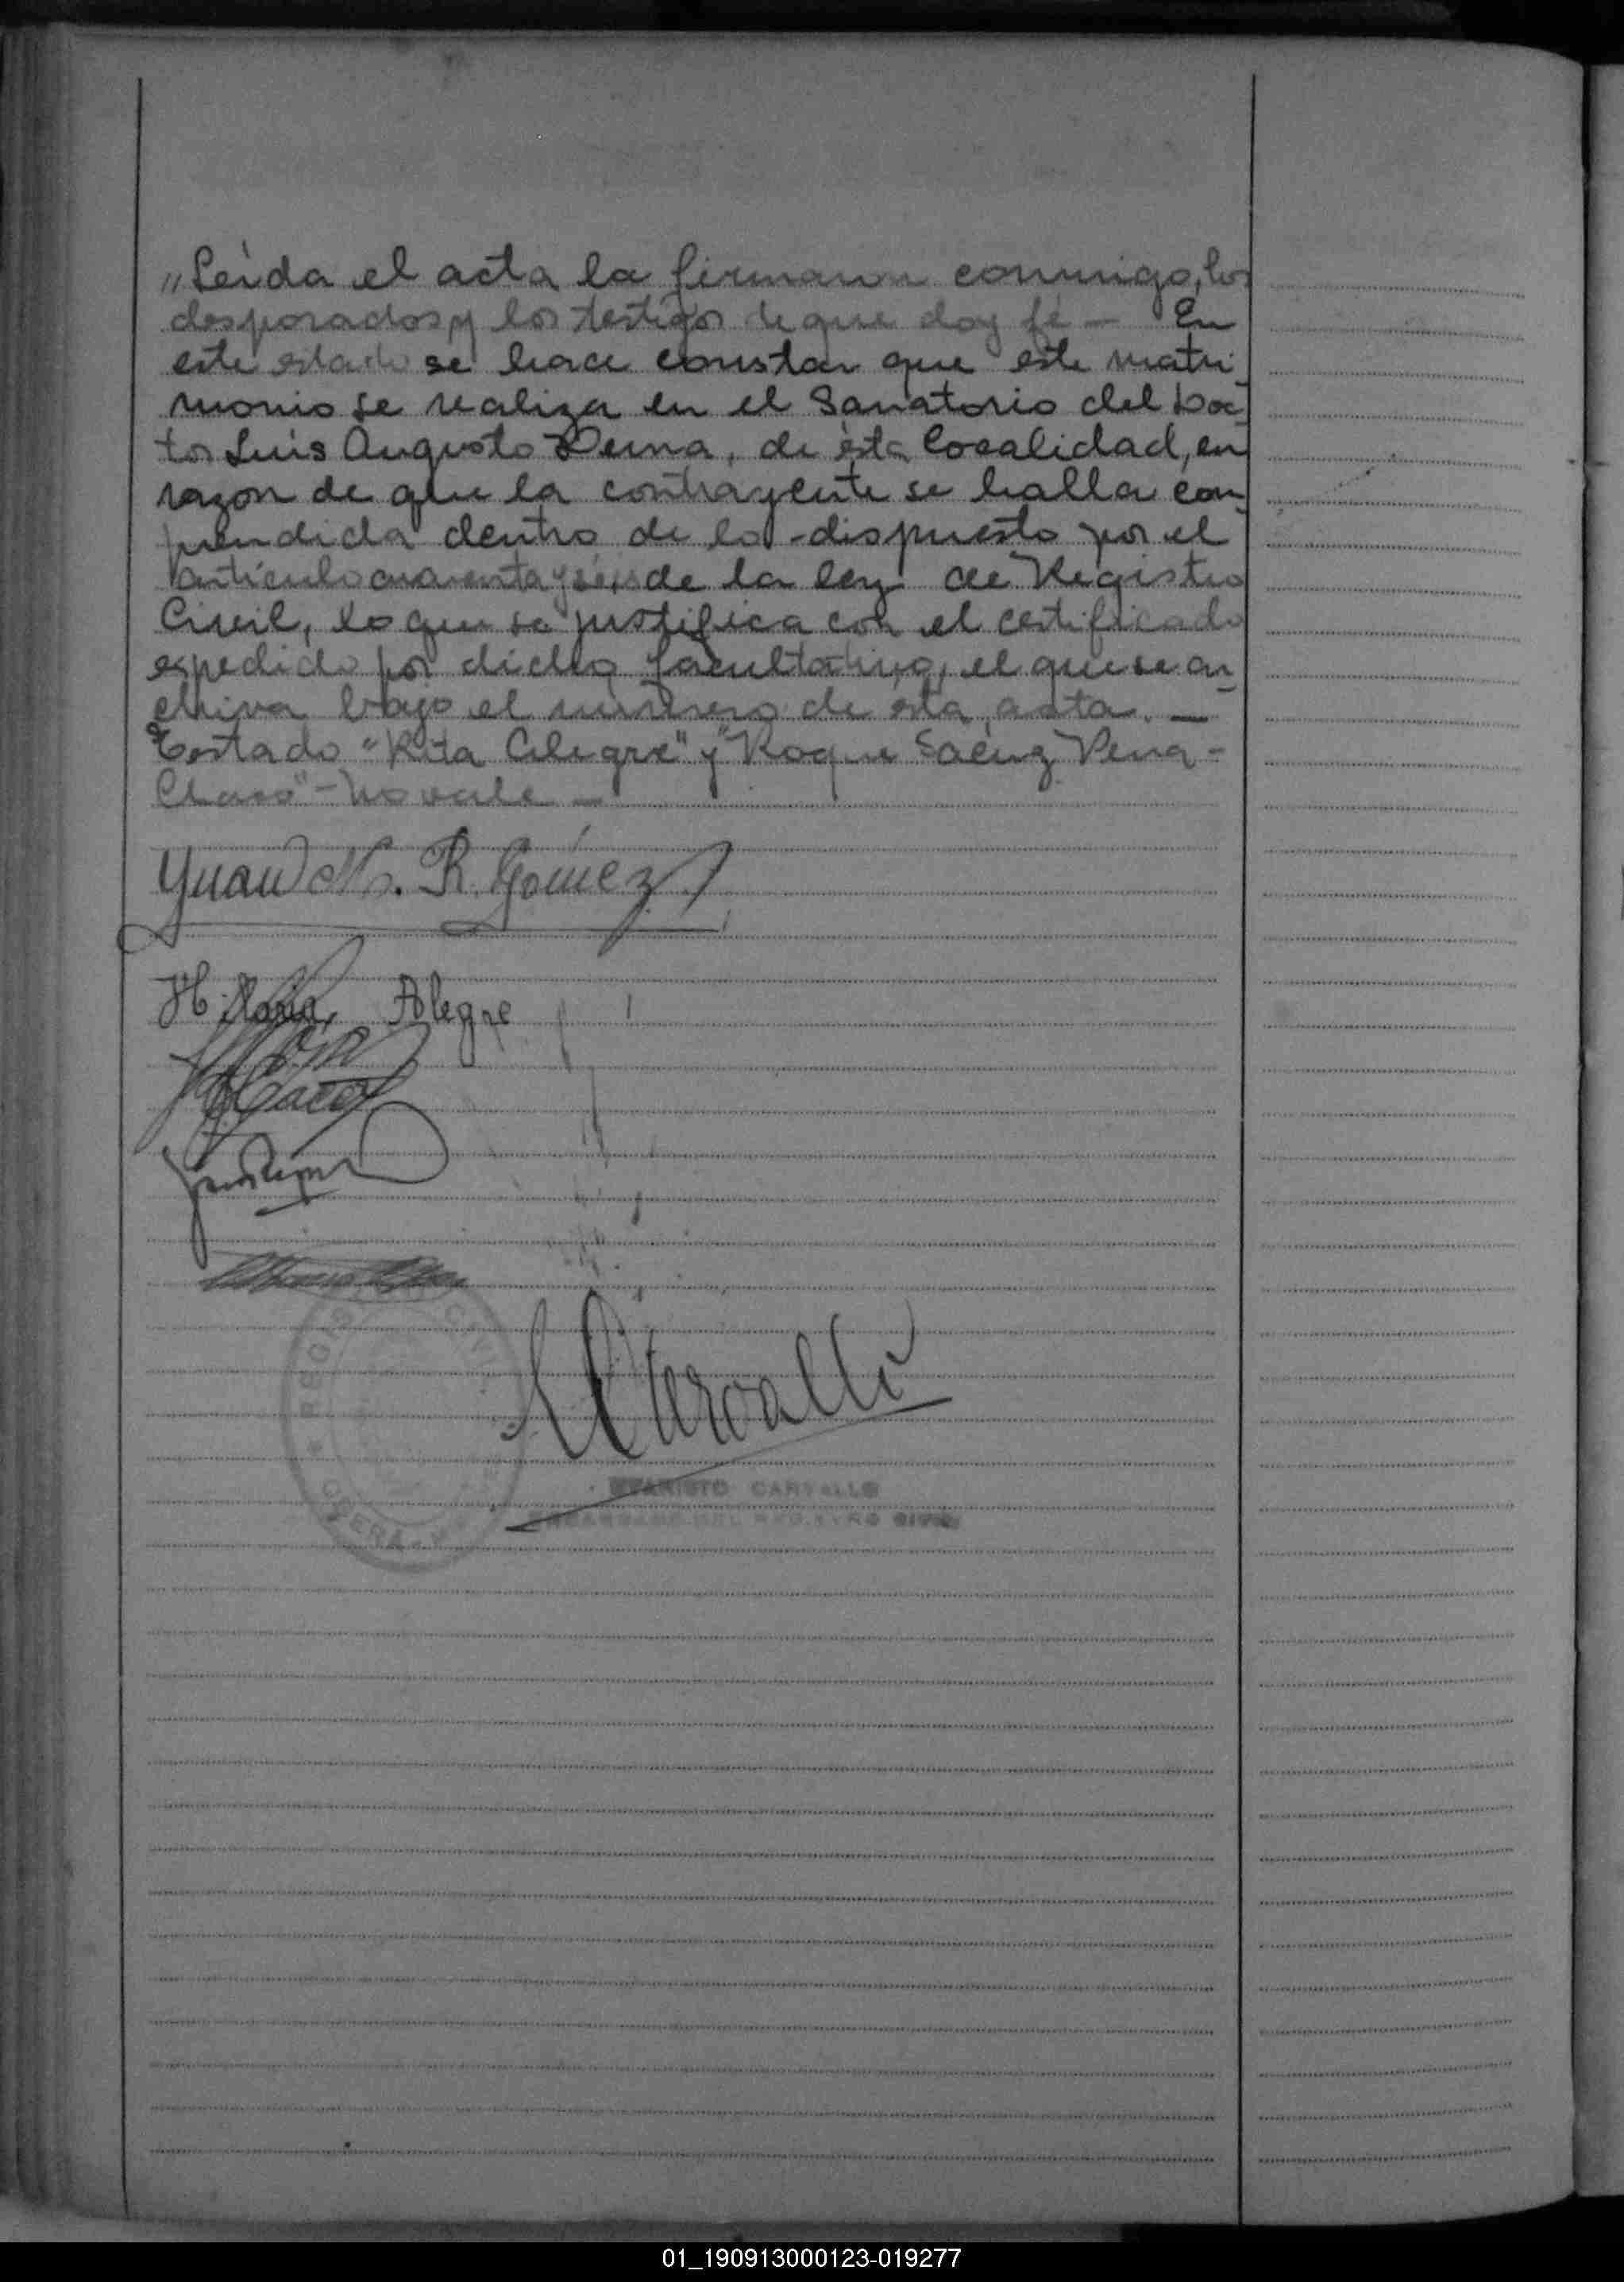 „Leida el acta la firmaron conmigo, los
desposados y los testigos de que doy fé — En
este estado se hace constar que este matri-
monio se realiza en el Sanatorio del Doc-
tor Luis Augusto Derna, de ésta localidad, en
razon de que la contrayente se halla com-
prendida dentro de lo dispuesto por el
articulo cuarenta y seis de la ley de Registro
Civil, lo que se justifica con el certificado
expedido por dicho facultativo, el que se ar-
chiva bajo el número de ésta acta. —
Testado "Rita Alegre" y "Roque Saénz Pena -
Chaco" - No vale —
Yuan R. Gómez
H. Maria Alegre
REGISTRO CIVIL
OBERA
E Carvallo
EVARISTO CARVALLO
ENCARGADO DEL REGISTRO CIVIL
01_190913000123-019277